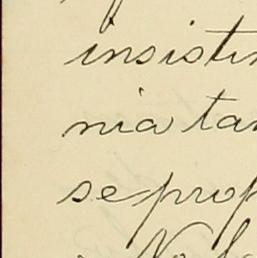 insistin
nia tan
se prop